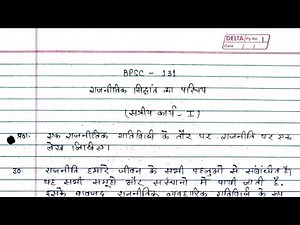 DELTA Pg No. 1
Date
BPSC - 131
राजनीतिक सिद्धांत का परिचय
(सत्रीय कार्य - I)
प्र01. एक राजनीतिक गतिविधि के तौर पर राजनीति पर एक
लेख लिखिए।
उ0. राजनीति हमारे जीवन के सभी पहलुओं से संबंधित है।
यह सभी समूहों और संस्थानों में पायी जाती है.
इसके बावजूद राजनीतिक व्यवहारिक गतिविधि के रूप